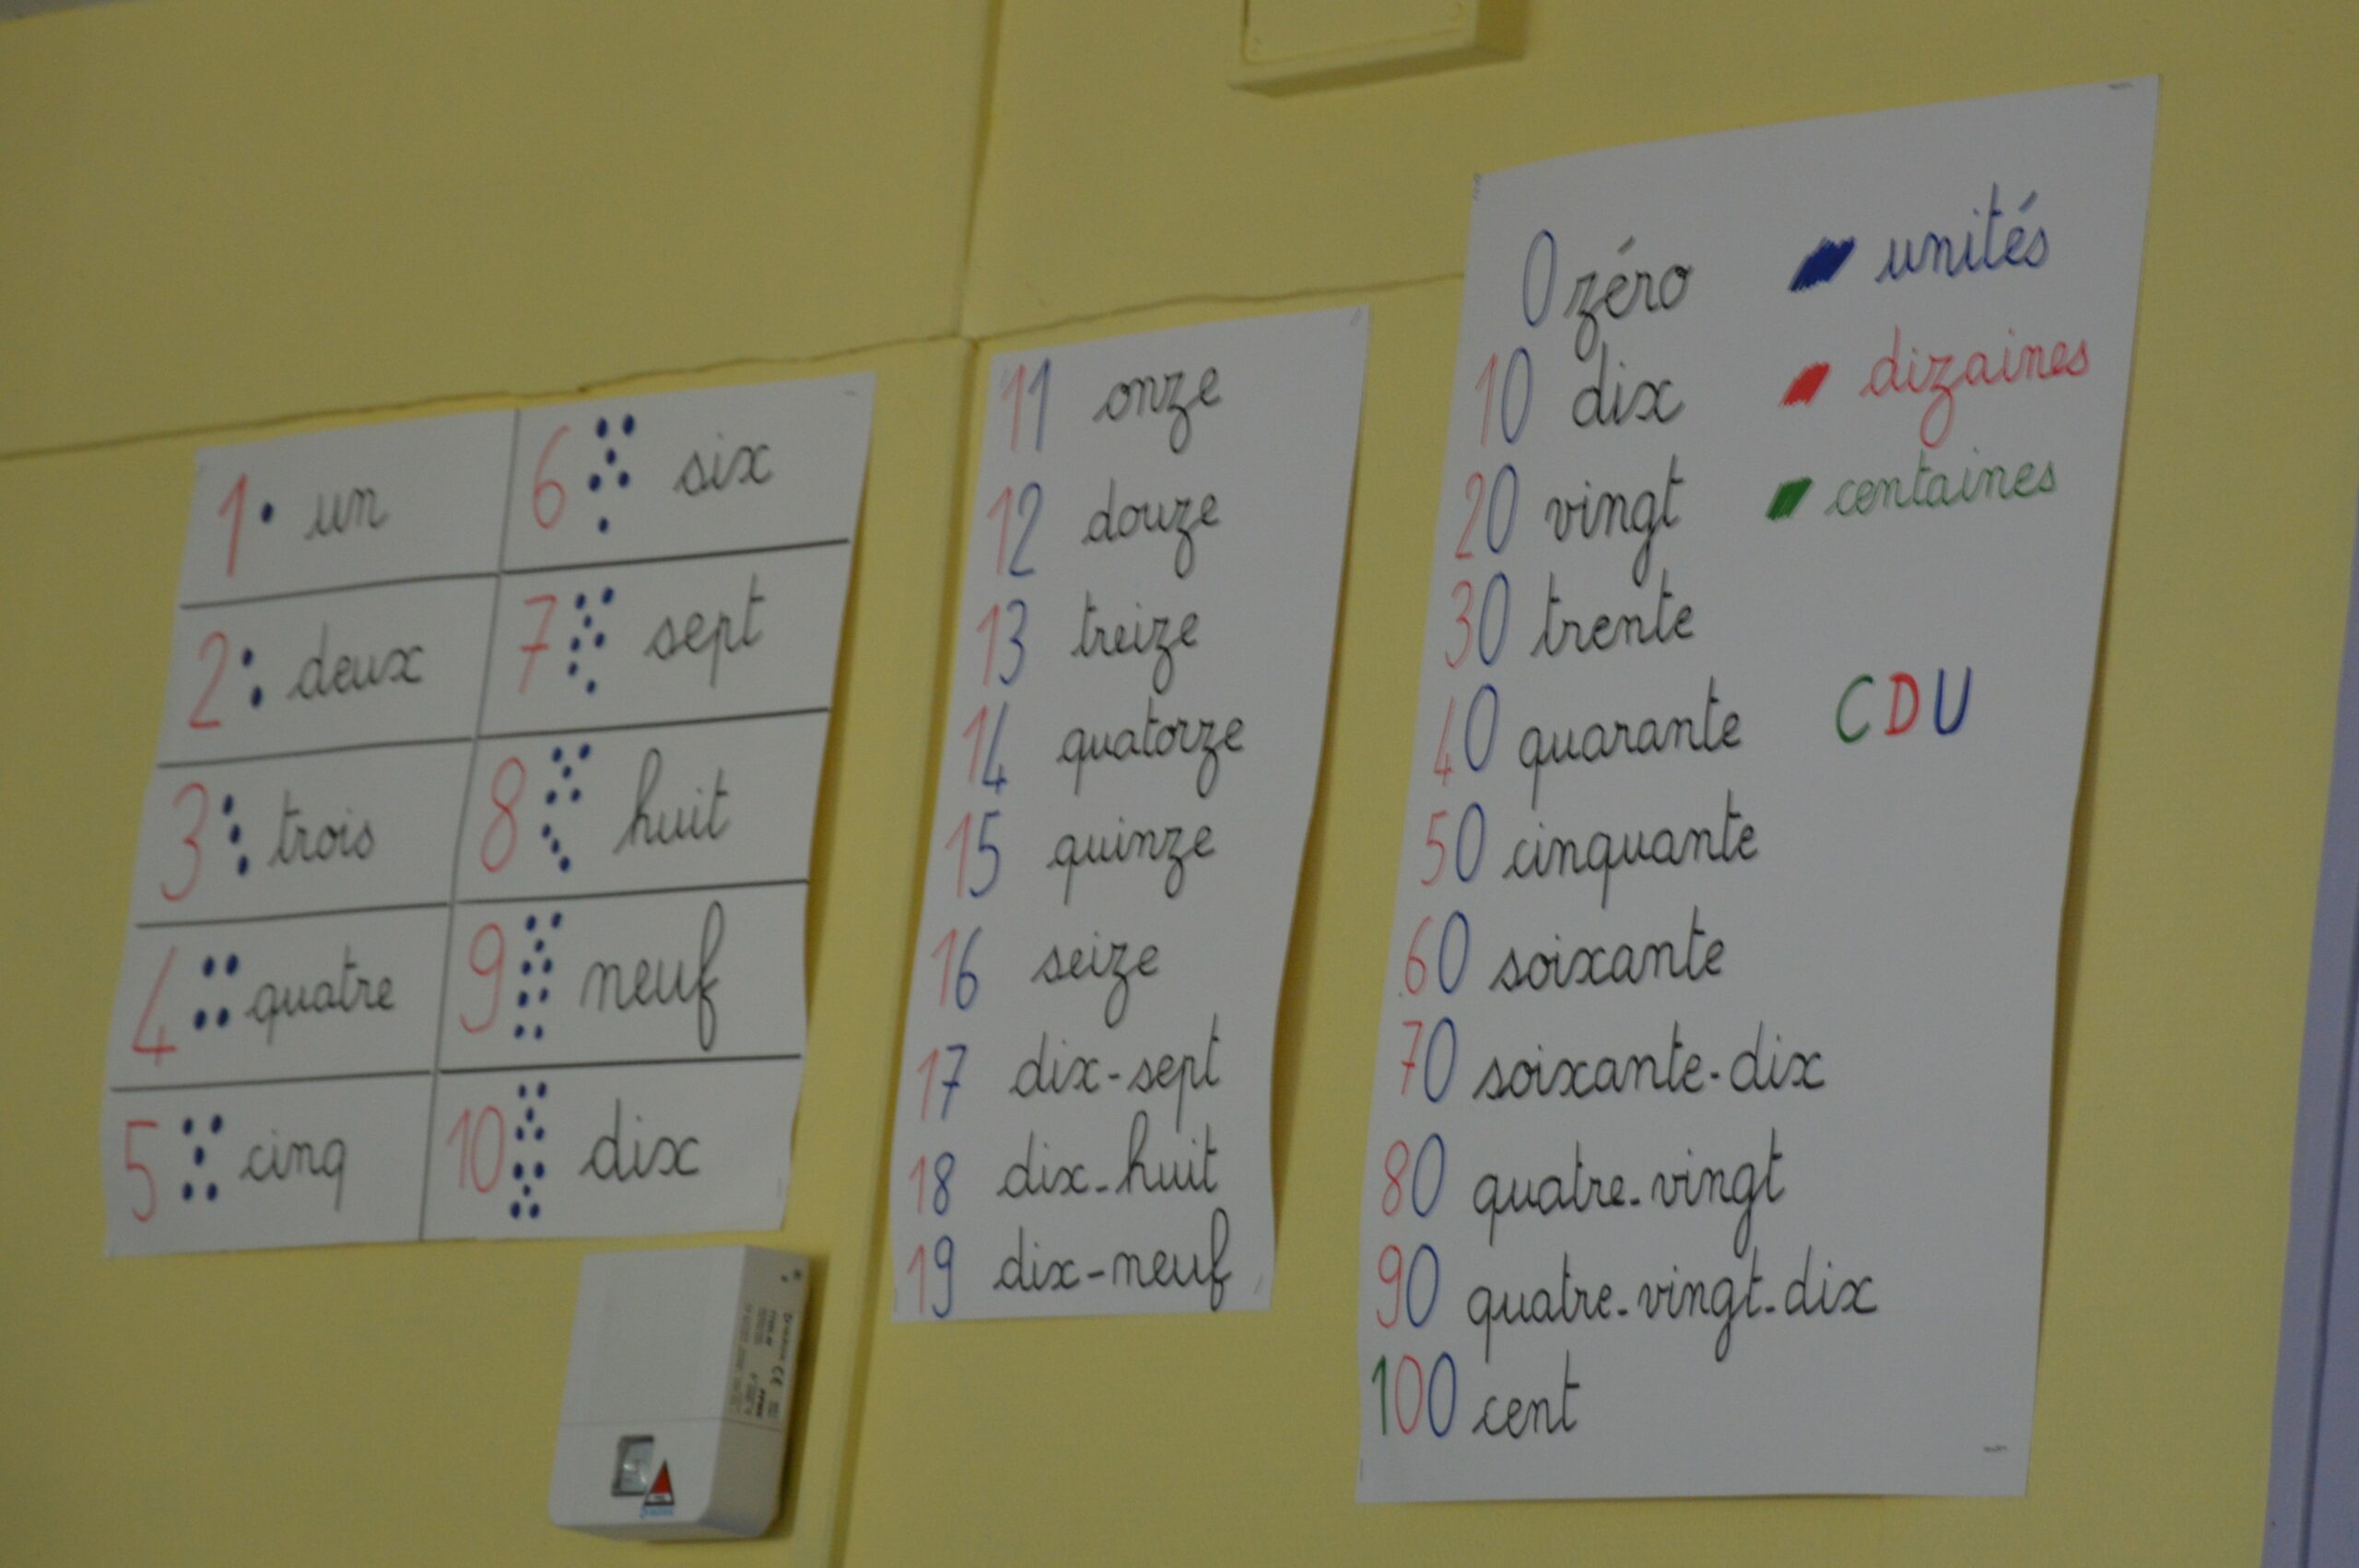 1 un
2 deux
3 trois
4 quatre
5 cinq
6 six
7 sept
8 huit
9 neuf
10 dix
11 onze
12 douze
13 treize
14 quatorze
15 quinze
16 seize
17 dix-sept
18 dix-huit
19 dix-neuf
0 zéro
10 dix
20 vingt
30 trente
40 quarante
50 cinquante
60 soixante
70 soixante-dix
80 quatre-vingt
90 quatre-vingt-dix
100 cent
unités
dizaines
centaines
CDU